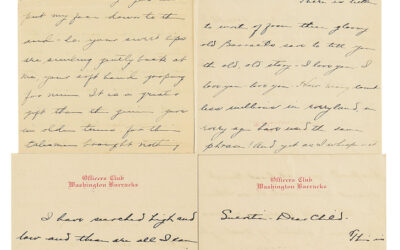 put my face down to the
and - lo, your sweet lips
are smiling gently back at
me, your soft hand groping
for mine. It is a greater
gift than the genii gave
in olden times for this
talisman brought nothing
There is little
to write of from this gloomy
old Barracks save to tell you
the old, old story - I love you I
love you love you. How many count
less millions in every land, in
every age have used the same
phrase! And yet as I whisper it
Officers Club
Washington Barracks
I have searched high and
low and these are all I can
Officers Club
Washington Barracks
Sweetie - Dear Child -
This is